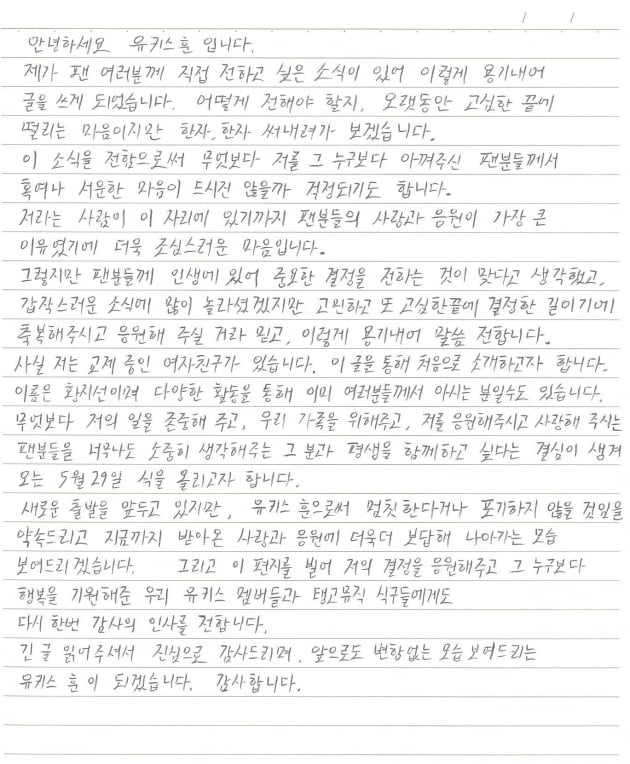 / /
안녕하세요 유키스 훈 입니다.
제가 팬 여러분께 직접 전하고 싶은 소식이 있어 이렇게 용기내어
글을 쓰게 되었습니다. 어떻게 전해야 할지, 오랫동안 고심한 끝에
떨리는 마음이지만 한자, 한자 써내려가 보겠습니다.
이 소식을 전함으로써 무엇보다 저를 그 누구보다 아껴주신 팬분들께서
혹여나 서운한 마음이 드시진 않을까 걱정되기도 합니다.
저라는 사람이 이 자리에 있기까지 팬분들의 사랑과 응원이 가장 큰
이유였기에 더욱 조심스러운 마음입니다.
그렇지만 팬분들께 인생에 있어 중요한 결정을 전하는 것이 맞다고 생각했고,
갑작스러운 소식에 많이 놀라셨겠지만 고민하고 또 고심한끝에 결정한 길이기에
축복해주시고 응원해 주실 거라 믿고, 이렇게 용기내어 말씀 전합니다.
사실 저는 교제 중인 여자친구가 있습니다. 이 글을 통해 처음으로 소개하고자 합니다.
이름은 황지선이며 다양한 활동을 통해 이미 여러분들께서 아시는 분일수도 있습니다.
무엇보다 저의 일을 존중해 주고, 우리 가족을 위해주고, 저를 응원해주시고 사랑해 주시는
팬분들을 너무나도 소중히 생각해주는 그 분과 평생을 함께하고 싶다는 결심이 생겨
오는 5월 29일 식을 올리고자 합니다.
새로운 출발을 앞두고 있지만, 유키스 훈으로써 멈칫한다거나 포기하지 않을 것임을
약속드리고 지금까지 받아온 사랑과 응원에 더욱더 보답해 나아가는 모습
보여드리겠습니다. 그리고 이 편지를 빌어 저의 결정을 응원해주고 그 누구보다
행복을 기원해준 우리 유키스 멤버들과 탱고뮤직 식구들에게도
다시 한번 감사의 인사를 전합니다.
긴 글 읽어주셔서 진심으로 감사드리며, 앞으로도 변함없는 모습 보여드리는
유키스 훈이 되겠습니다. 감사합니다.